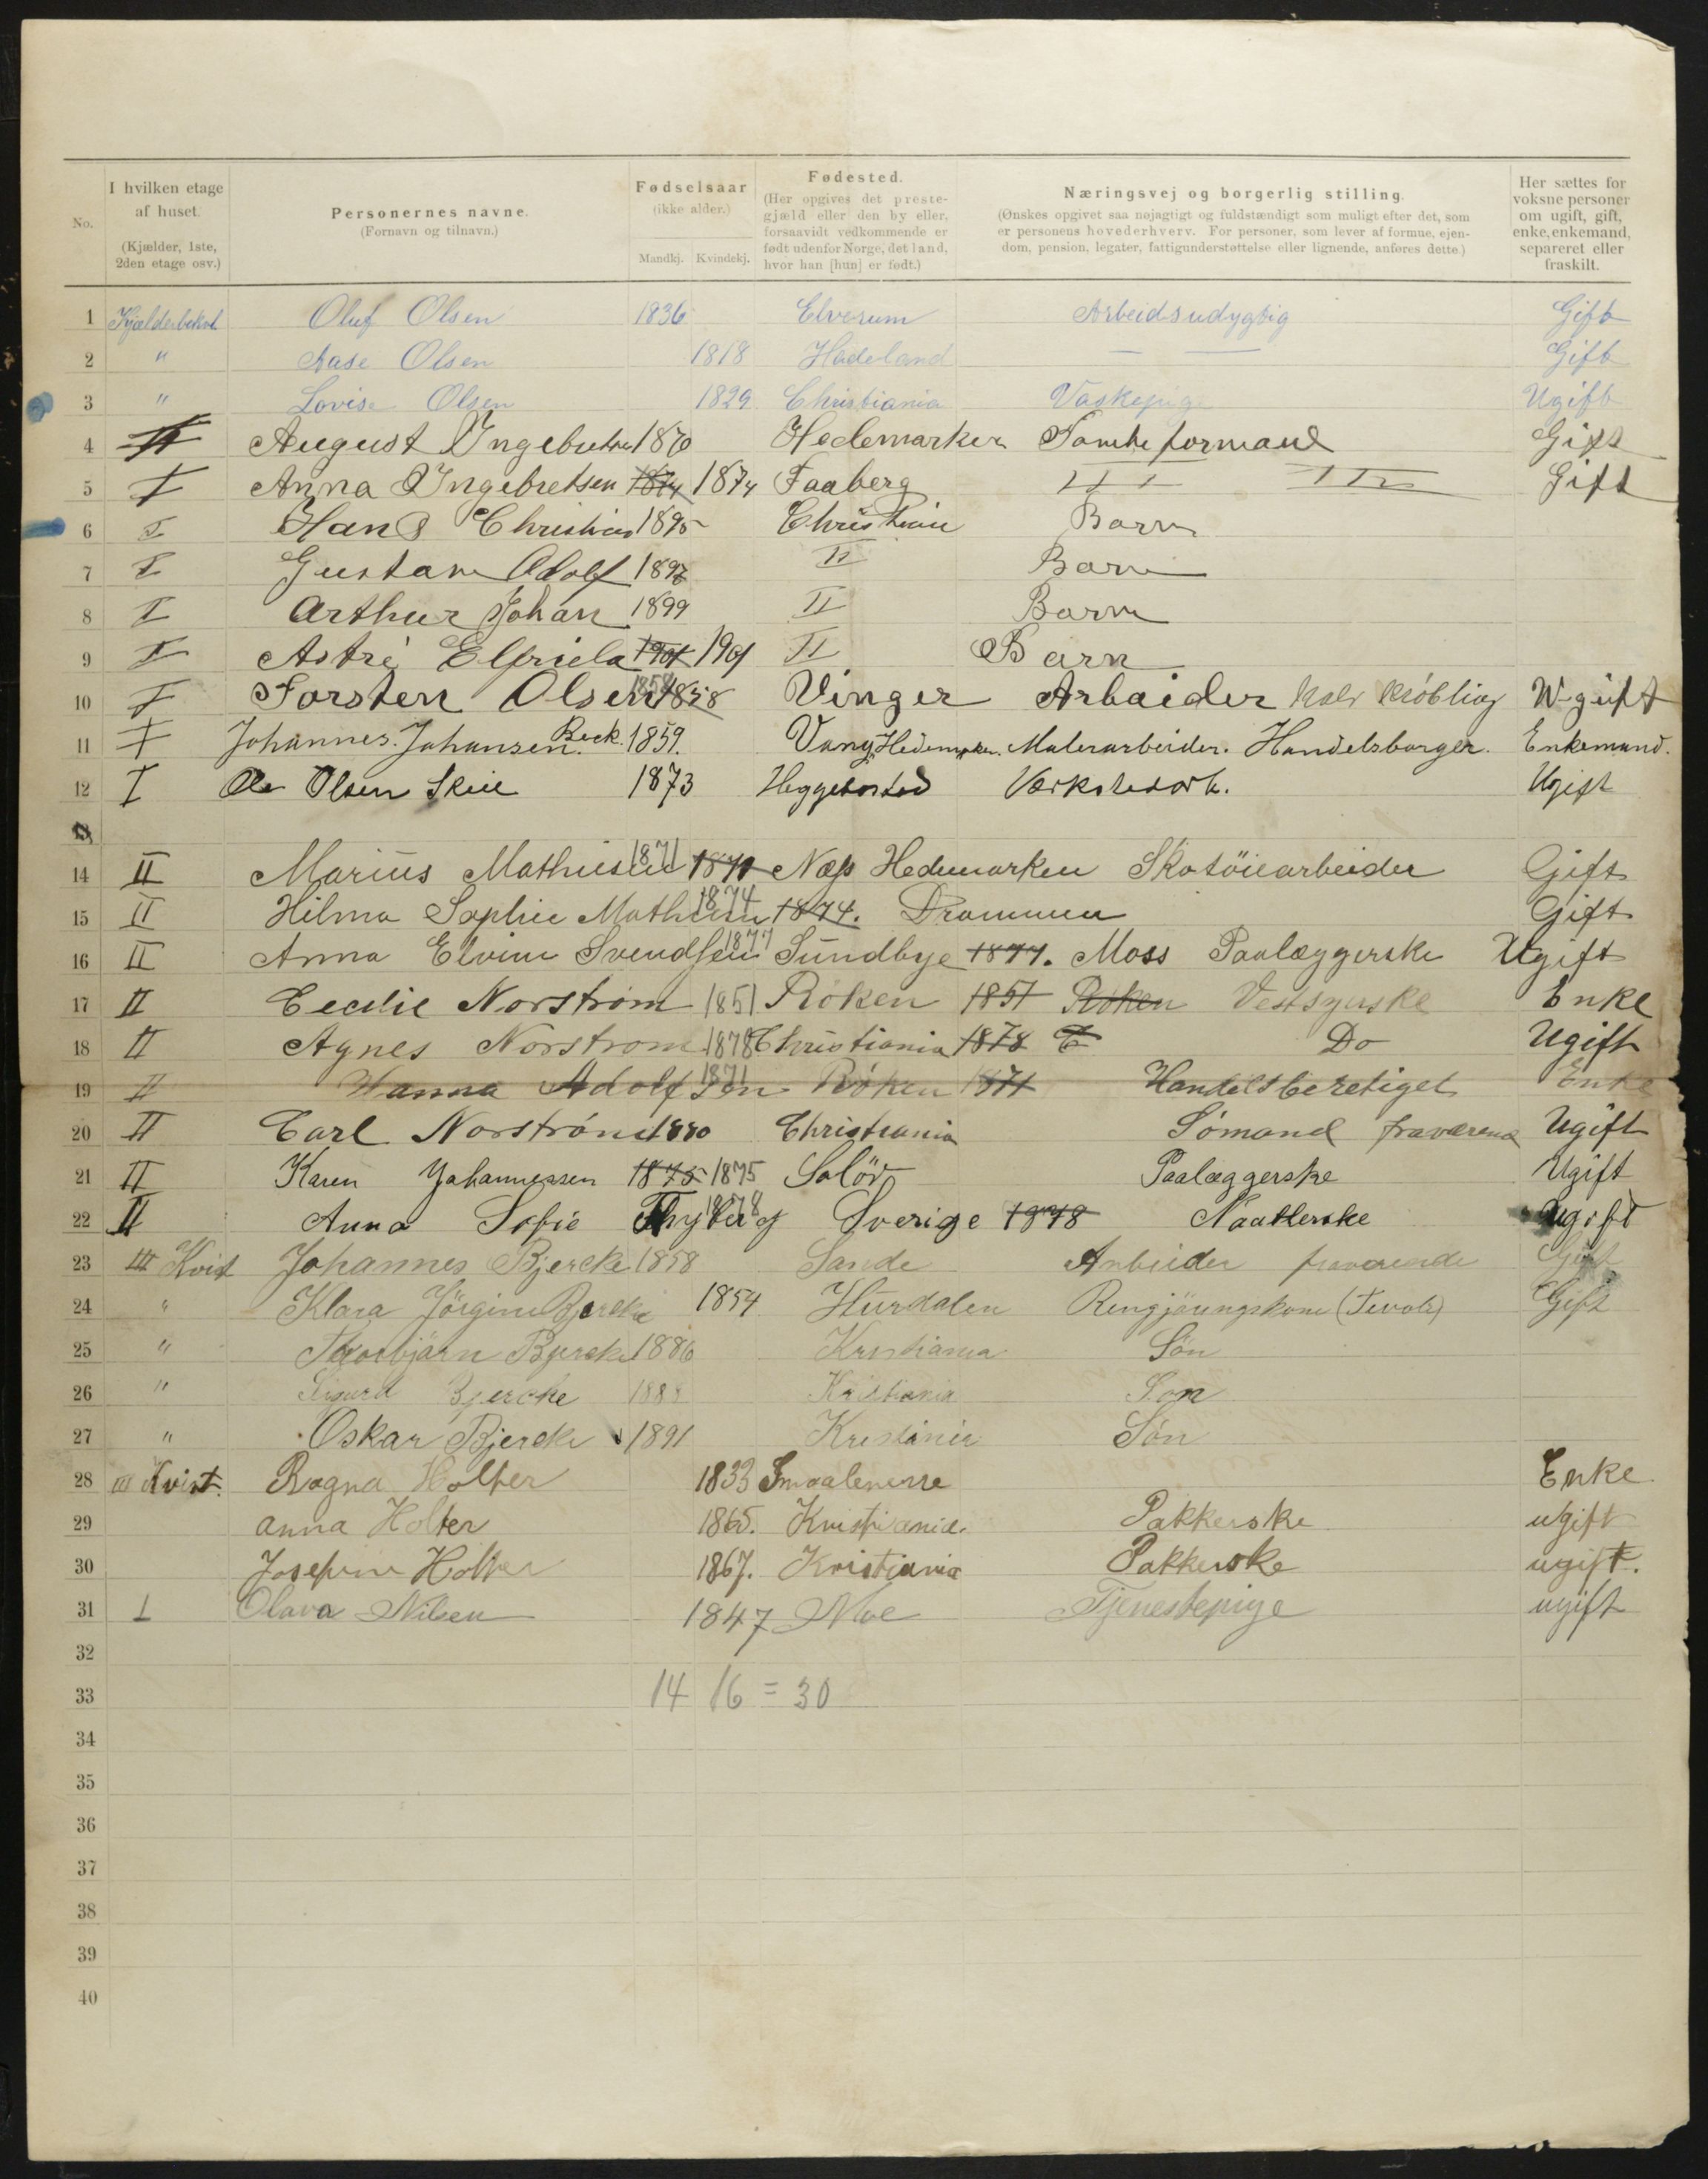 No. I hvilken etage af huset. (Kjælder, 1ste, 2den etage osv.) Personernes navne. (Fornavn og tilnavn.) Fødselsaar (ikke alder.) Mandkj. Kvindekj. Fødested. (Her opgives det prestegjæld eller den by eller, forsaavidt vedkommende er født udenfor Norge, det land, hvor han [hun] er født.) Næringsvej og borgerlig stilling. (Ønskes opgivet saa nøjagtigt og fuldstændigt som muligt efter det, som er personens hovederhverv. For personer, som lever af formue, ejendom, pension, legater, fattigunderstøttelse eller lignende, anføres dette.) Her sættes for voksne personer om ugift, gift, enke, enkemand, separeret eller fraskilt.
1 Oluf Olsen 1836 Elverum Arbeidsudygtig Gift
2 " Aase Olsen 1818 Hadeland — — Gift
3 " Lovise Olsen 1829 Christiania Vaskepige Ugift
4 August 1870 Hedemarken Gift
5 I Anna Ingebretsen 1874 1874 Faaberg Gift
6 I Hans Christian 1895 Barn
7 I Gustav Adolf II Barn
8 I Arthur Johan 1899 II Barn
9 I 1901 1901 II Barn
10 I Torsten Olsen 1858 1858 Vinger Arbaider Halv Krøbling
11 I Johannes Johansen Beck. 1859. Vang, Hedemarken. Malerarbeider. Handelsborger. Enkemand.
12 I Ole Olsen 1873 Ugift
13
14 II Marius Mathiesen 1871 1871 Næs Hedemarken Skotöiearbeider Gift
15 II Hilma Sophie Mathiesen 1874 1874. Drammen Gift
16 II Anna Elvine Svendsen 1877 Sundbye 1877. Moss Paalæggerske Ugift
17 II Cecilie Norstrøm 1851 Røken 1851 Røken Vestsyerske Enke
18 II Agnes Norstrøm 1878 Christiania 1878 C Do Ugift
19 II Hanna Adolfsen 1871 Røken 1871 Handelsberetiget Enke
20 II Carl Norstrøm 1880 Christiania Sømand fraværend Ugift
21 II Karen Johannessen 1875 1875 Solör Paalæggerske Ugift
22 II Anna Sofie Thyberg 1878 Sverige 1878 Naatlerske Ugift
23 III Kvist Johannes Bjercke 1858 Sande Arbeider fraværende Gift
24 " Klara Jörgine Bjercke 1854 Hurdalen Rengjöringskone (Tivoli) Gift
25 " Thorbjørn Bjercke 1886 Kristiania Sön
26 " Sigurd Bjercke 1888 Kristiania Søn
27 " Oskar Bjercke 1891 Kristiania Søn
28 III Kvist. Ragna Holter 1833 Smaalenene Enke
29 Anna Holter 1865. Kristiania. Pakkerske ugift
30 Josefine Holter 1867. Kristiania Pakkerske ugift.
31 I Olava Nilsen 1847 Moe Tjenestepige ugift
32
33 14 16 = 30
34
35
36
37
38
39
40